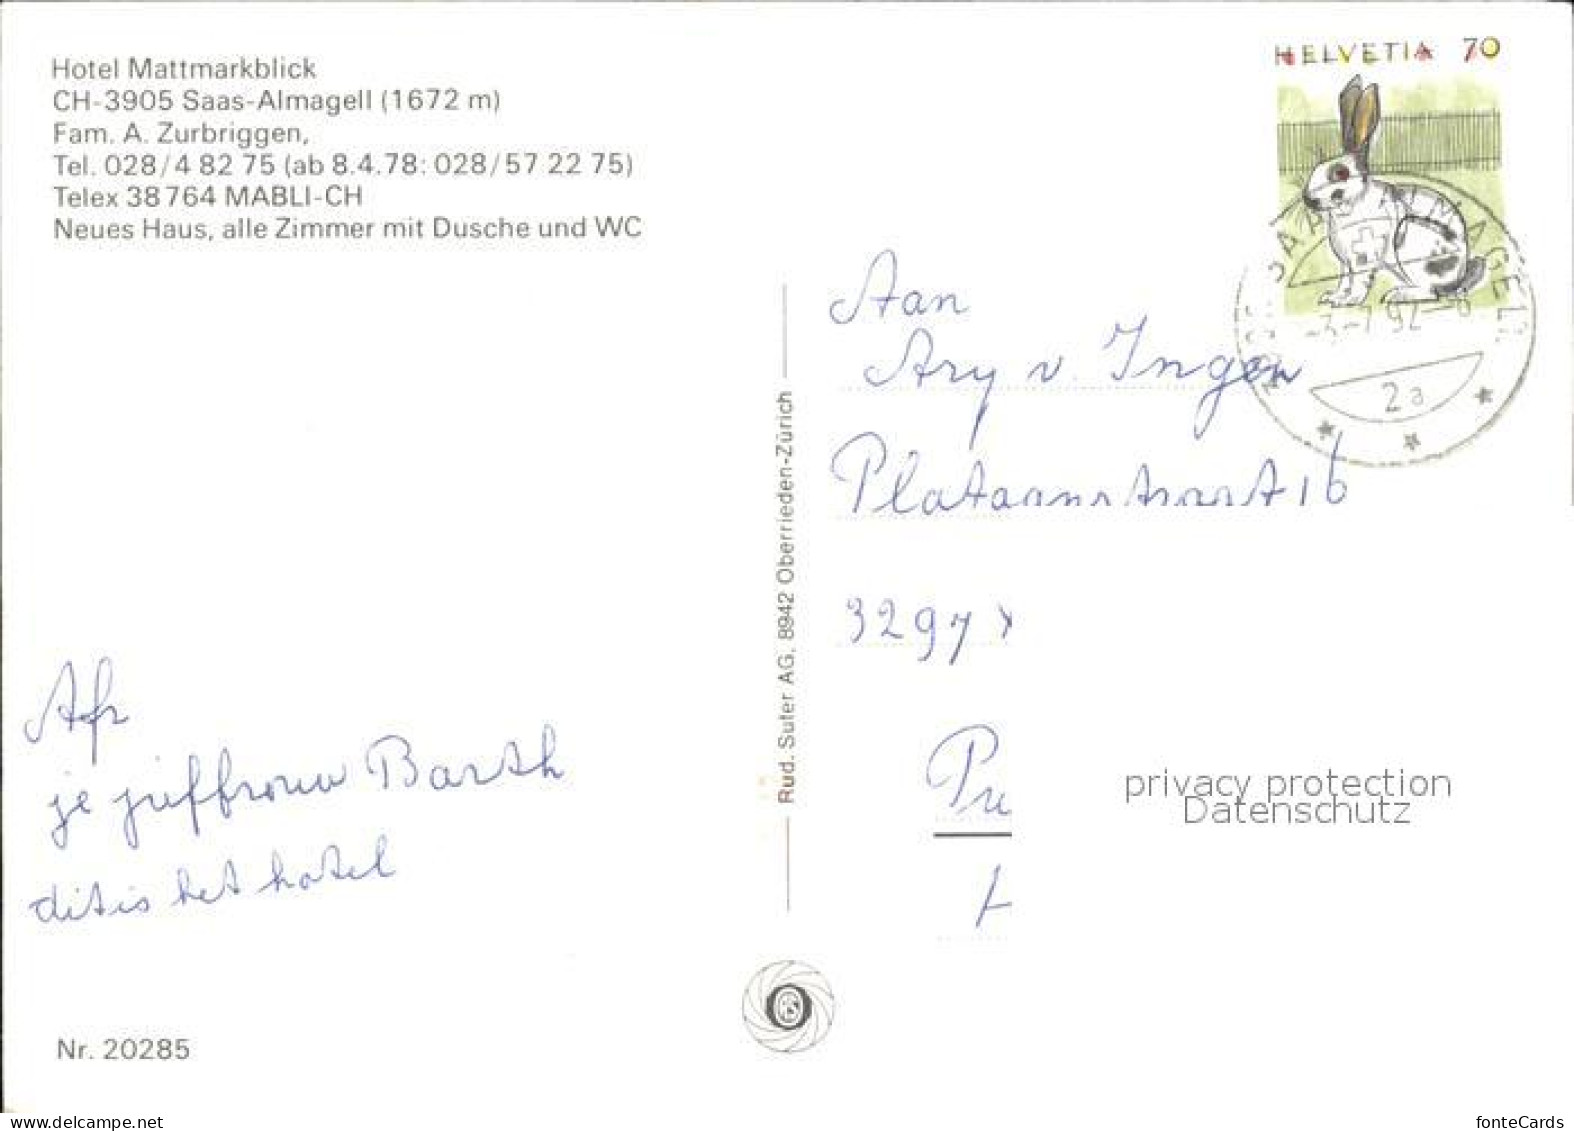 Hotel Mattmarkblick
CH-3905 Saas-Almagell (1672 m)
Fam. A. Zurbriggen,
Tel. 028/4 82 75 (ab 8.4.78: 028/57 22 75)
Telex 38 764 MABLI-CH
Neues Haus, alle Zimmer mit Dusche und WC
Afz
je juffrouw Barth
dit is het hotel
Nr. 20285
Rud. Suter AG, 8942 Oberrieden-Zürich
HELVETIA 70
SAAS-ALMAGELL
-3-7 92-18
2a
Aan
Ary v. Ingen
Plataanstraat 16
3297
Pu
privacy protection
Datenschutz
www.delcampe.net
fonteCards